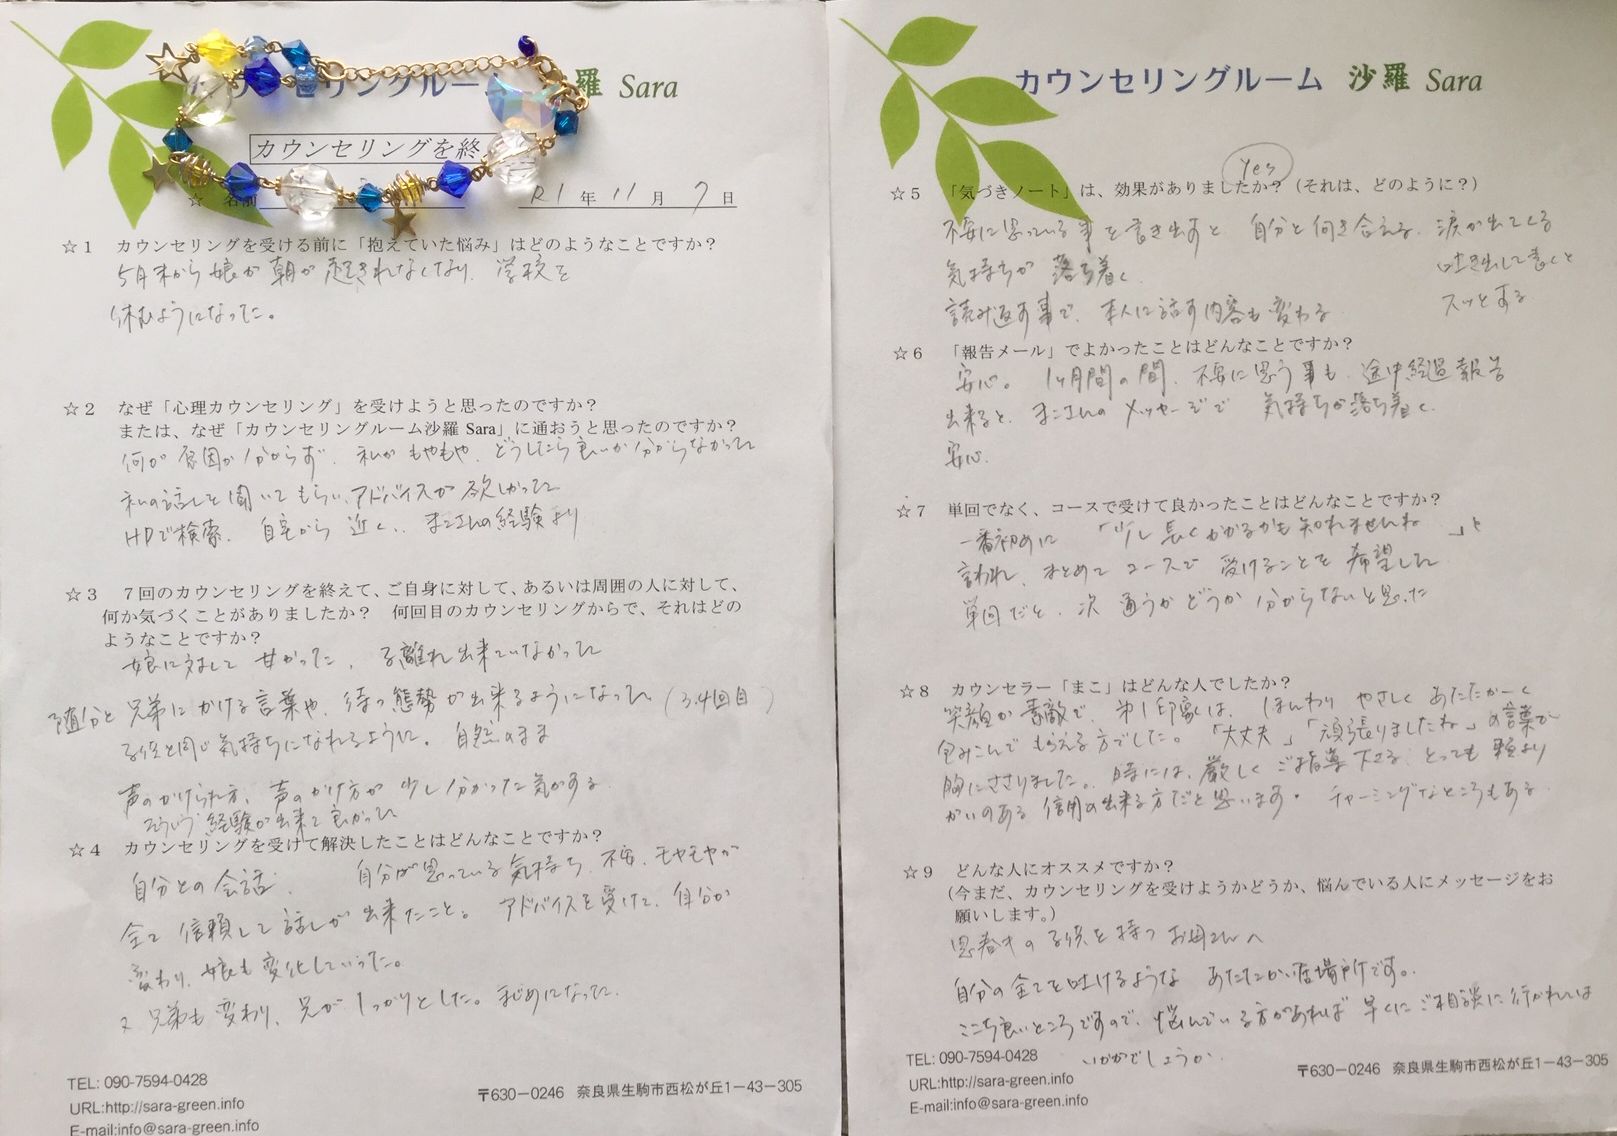 リングルーム 羅 Sara
カウンセリングを終
☆ 名前 R1 年 11 月 7 日
☆１ カウンセリングを受ける前に「抱えていた悩み」はどのようなことですか？
5月末から娘が朝が起きれなくなり、学校を
休むようになった。
☆２ なぜ「心理カウンセリング」を受けようと思ったのですか？
または、なぜ「カウンセリングルーム沙羅 Sara」に通おうと思ったのですか？
何が原因か分からず、私がもやもや、どうしたら良いか分からなかった
私の話しを聞いてもらい、アドバイスが欲しかった
HPで検索、自宅から近く、まこさんの経験より
☆３ ７回のカウンセリングを終えて、ご自身に対して、あるいは周囲の人に対して、
何か気づくことがありましたか？ 何回目のカウンセリングからで、それはどの
ようなことですか？
娘に対して甘かった、子離れ出来ていなかった
随分と兄弟にかける言葉や、待つ態勢が出来るようになった（3.4回目）
子供と同じ気持ちになれるように。自然のまま
声のかけられ方、声のかけ方が少し分かった気がする
そういう経験が出来て良かった
☆４ カウンセリングを受けて解決したことはどんなことですか？
自分との会話、自分が思っている気持ち、不安、モヤモヤが
全て信頼して話しが出来たこと。アドバイスを受けて、自分が
変わり、娘も変化していった。
又兄弟も変わり、兄がしっかりとした。まじめになった。
TEL: 090-7594-0428
URL:http://sara-green.info
E-mail:info@sara-green.info
〒630－0246 奈良県生駒市西松が丘1－43－305
カウンセリングルーム 沙羅 Sara
Yes
☆５ 「気づきノート」は、効果がありましたか？（それは、どのように？）
不安に思っている事を書き出すと、自分と向き合える。涙が出てくる
気持ちが落ち着く 吐き出して書くと
スッとする
読み返す事で、本人に話す内容も変わる
☆６ 「報告メール」でよかったことはどんなことですか？
安心。1ヶ月間の間、不安に思う事も、途中経過報告
出来ると、まこさんのメッセージで気持ちが落ち着く。
安心。
☆７ 単回でなく、コースで受けて良かったことはどんなことですか？
一番初めに「少し長くかかるかも知れませんね」と
言われ、まとめてコースで受けることを希望した
単回だと、次通うかどうか分からないと思った
☆８ カウンセラー「まこ」はどんな人でしたか？
笑顔が素敵で、第1印象は、ほんわりやさしくあたたかーく
包みこんでもらえる方でした。「大丈夫」「頑張りましたね」の言葉が
胸にささりました。時には、厳しくご指導下さる、とっても頼より
がいのある信用の出来る方だと思います。チャーミングなところもある。
☆９ どんな人にオススメですか？
（今まだ、カウンセリングを受けようかどうか、悩んでいる人にメッセージをお
願いします。）
思春期の子供を持つお母さんへ
自分の全てを吐けるようなあたたかい居場所です。
ここち良いところですので、悩んでいる方があれば早くにご相談に行かれては
いかがでしょうか。
TEL: 090-7594-0428
URL:http://sara-green.info
E-mail:info@sara-green.info
〒630－0246 奈良県生駒市西松が丘1－43－305